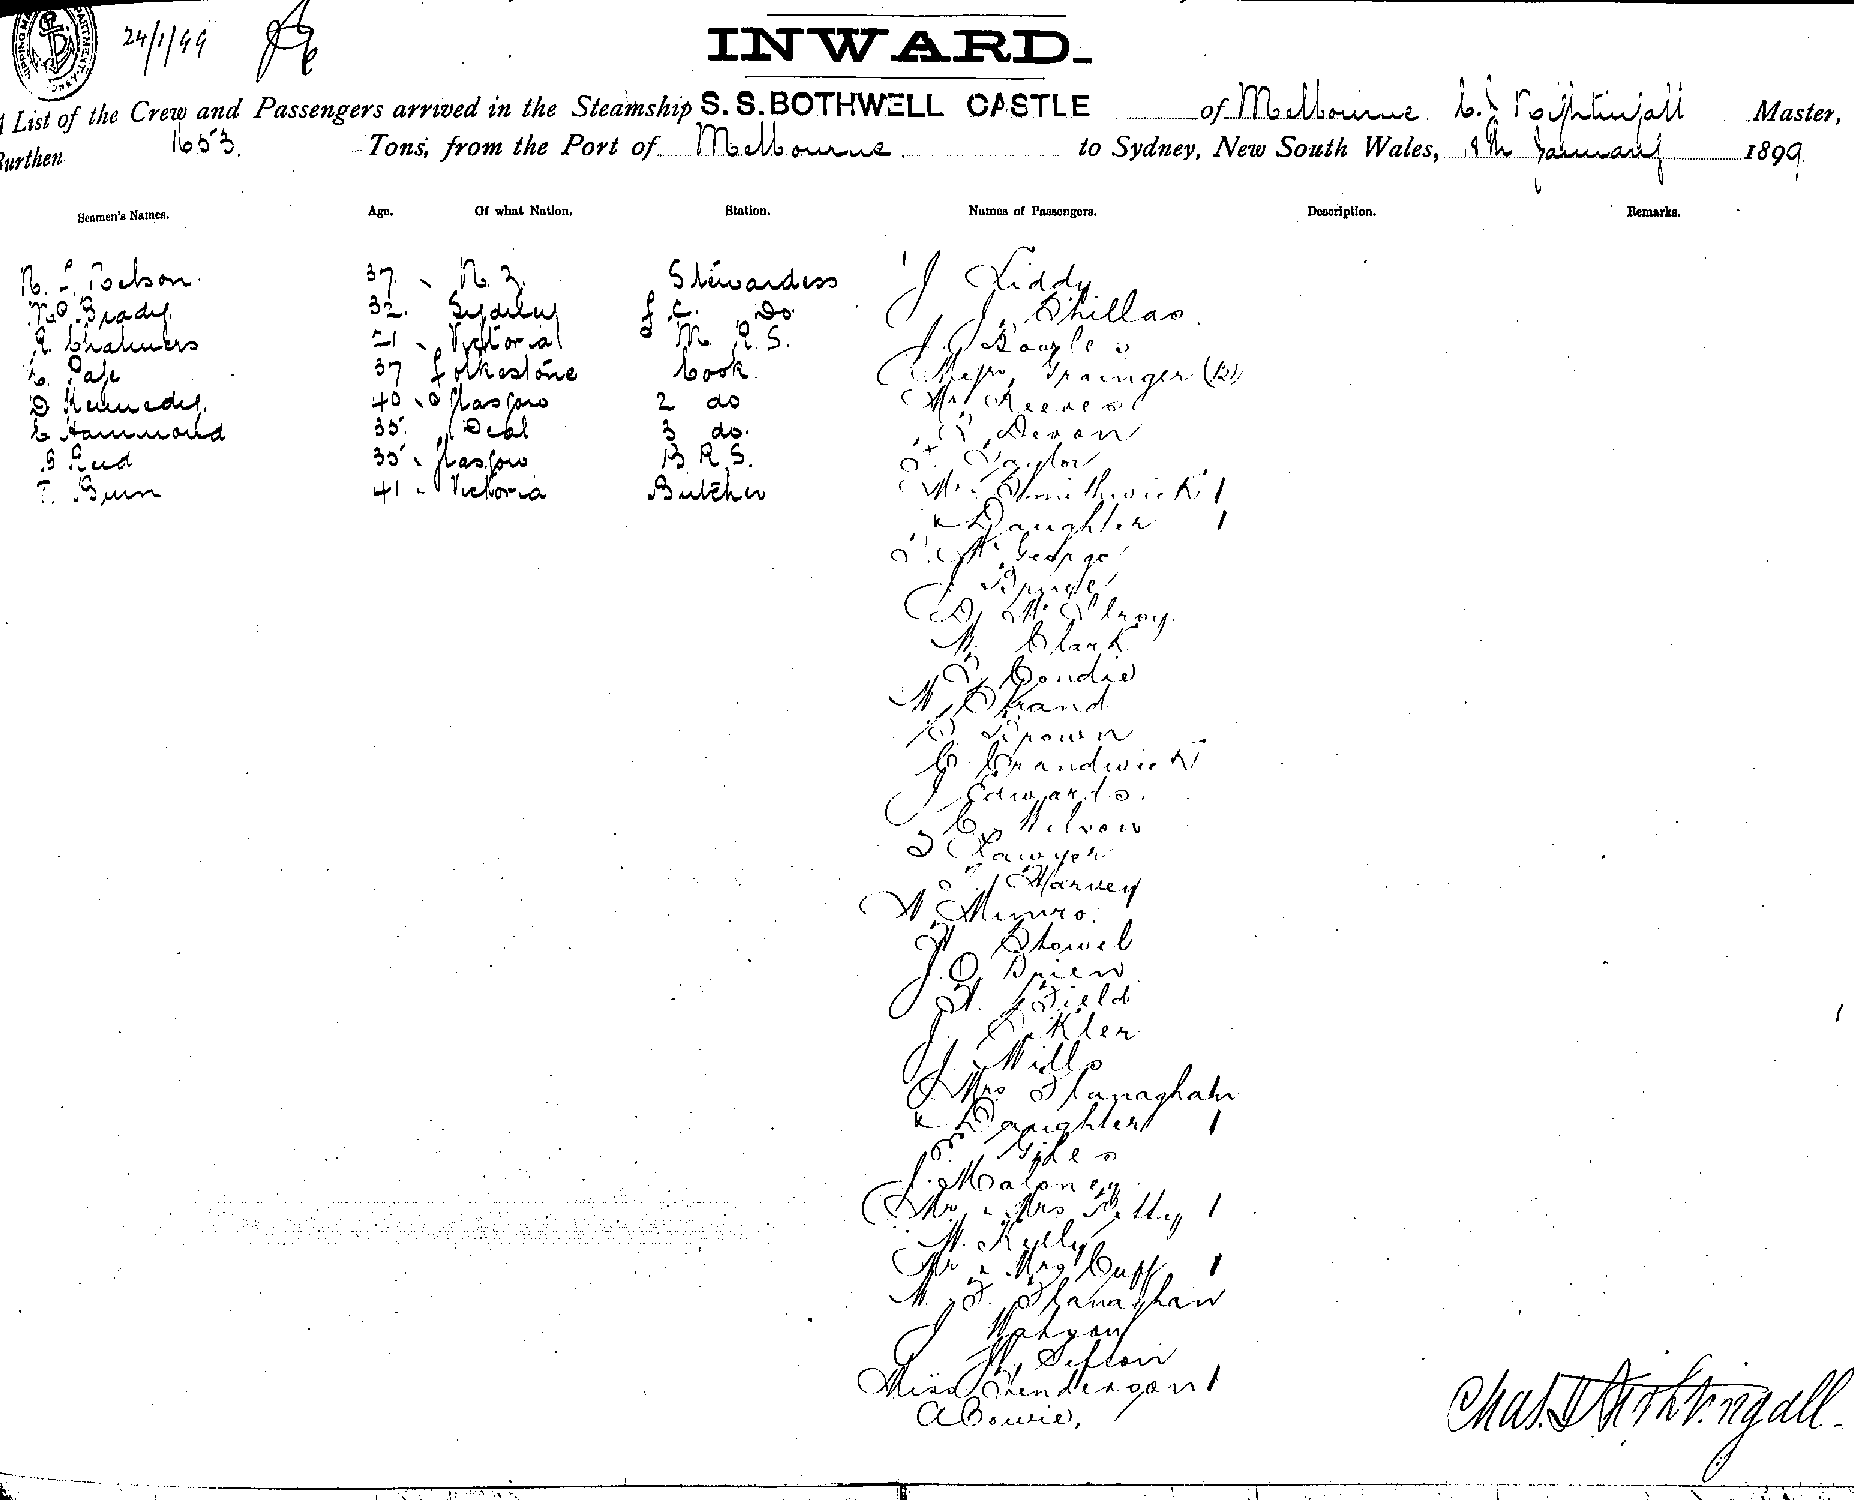 24/1/99
INWARD.
List of the Crew and Passengers arrived in the Steamship S.S. BOTHWELL CASTLE of Melbourne C. J Nightingall Master,
Burthen 1653 Tons, from the Port of Melbourne to Sydney, New South Wales, 18th January 1899
Seamen's Names. Age. Of what Nation. Station. Names of Passengers. Description. Remarks.
37 N. Z. Stewardess J Liddy
Brady 32 Sydney Do J
R. Chalmers 21 Victoria M R.S. J Bowles
Page 37 Folkestone Cook Grainger
D Kennedy 40 Glasgow 2 do Mr Reeves
C Hammond 35 Deal 3 do Devon
Reid 35 Glasgow B R S. Taylor
T. Bunn 41 Victoria Butcher Mr Smithwick 1
Daughter 1
George
J
D McElroy
Clark
Condie
Strand
Brown
C
J Edwards
Wilson
Sawyer
Harvey
W Munro
Stowel
J. O Brien
Field
J.
J Mills
Mrs Flanaghan
& Daughter 1
Giles
J. Maloney
Mr & Mrs 1
M. Kelly
Mr & Mrs Cuff 1
M. F. Flanaghan
J
W. Sefton
Miss Henderson 1
A Bowie,
Chas. J Nightingall